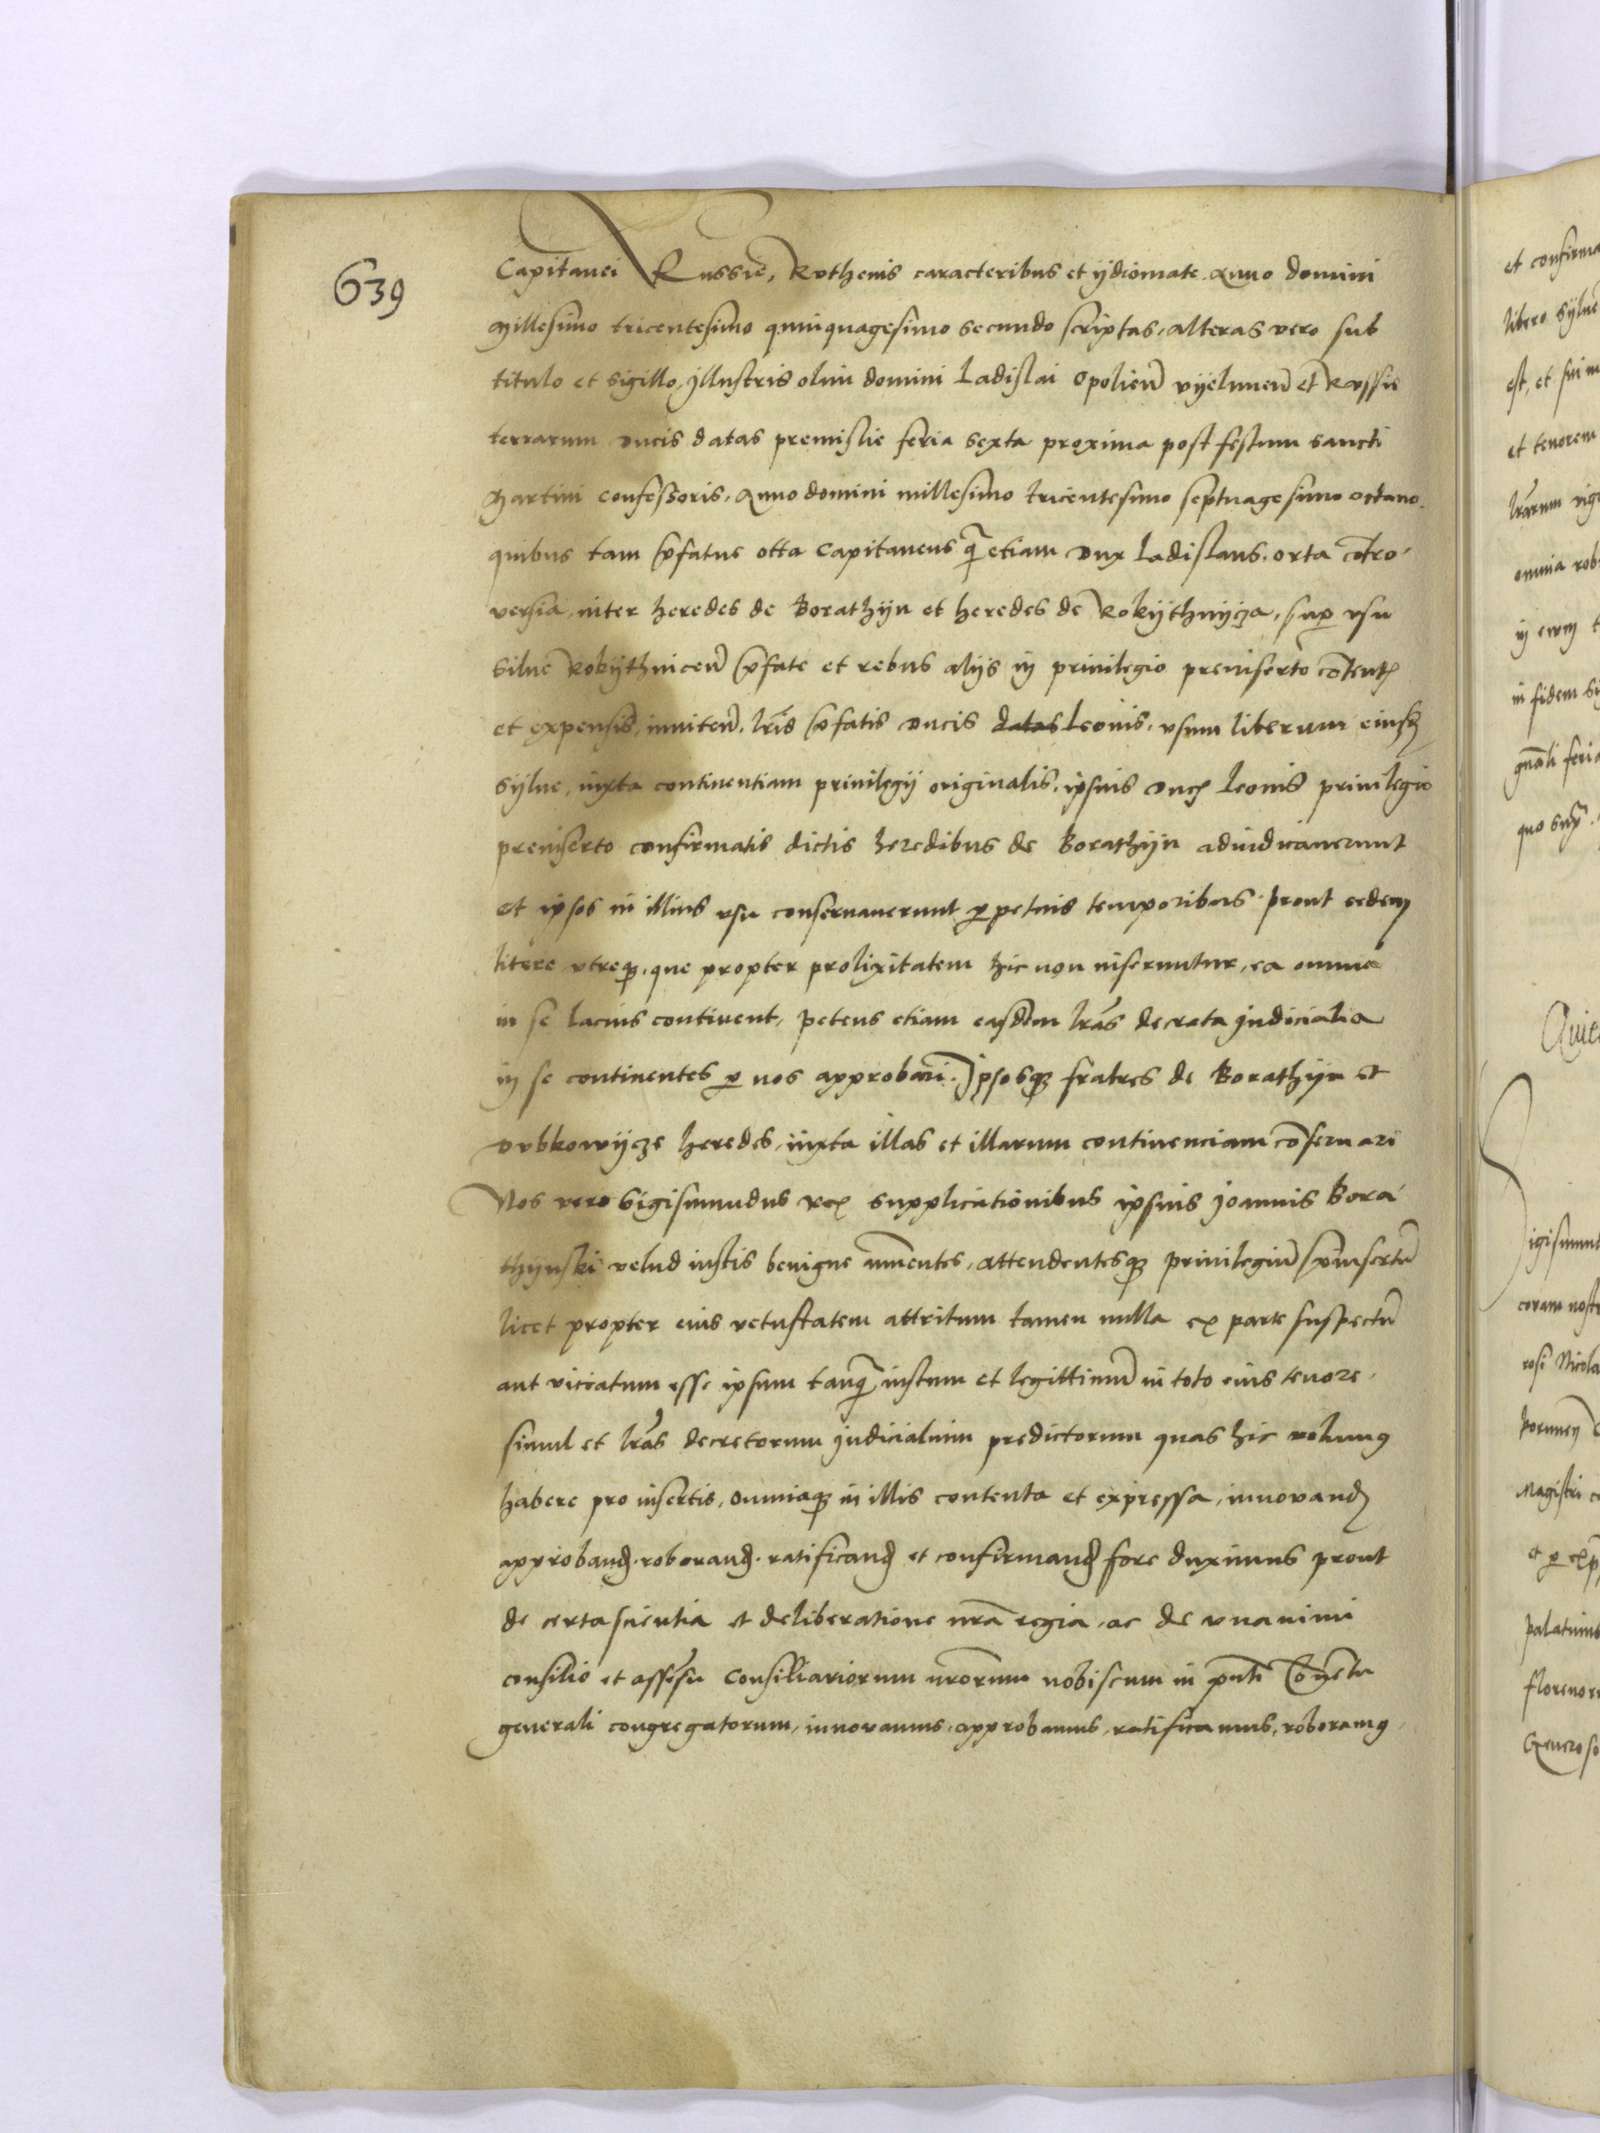 639
Capitanei Russie, Ruthenis caracteribus et ydiomate. Anno domini
Millesimo tricentesimo quinquagesimo secundo scriptas, alteras vero sub
titulo et sigillo, illustris olim domini Ladislai Opolien̄ vyelunen̄ et Russie
terrarum ducis datas premislie feria sexta proxima post festum sancti
Martini confessoris, Anno domini millesimo tricentesimo septuagesimo octauo.
quibus tam p̄fatus otta Capitaneus q̄ etiam dux Ladislaus, orta cōtro-
uersia, inter heredes de Borathyn et heredes de Rokythnycza, sup vsu
silue Rokythnicen̄ p̄fate et rebus alijs in priuilegio preinserto cōtentꝭ
et expensis, inniten̄. lr̄is p̄fatis ducis datas Leonis, vsum liberum eiusdꝫ
sylue, iuxta continentiam priuilegij originalis, ipsius ducꝭ Leonis priuilegio
preinserto confirmatis dictis heredibus de Borathyn adiudicauerunt
et ipsos in illius vsu conseruauerunt ꝑpetuis temporibus. prout eedem
litere vtreqꝫ, que propter prolixitatem hic non inseruntur, ea omnia
in se lacius continent, petens etiam easdem lr̄as decreta judicialia
in se continentes ꝑ nos approbari. Ipsosqꝫ fratres de Borathyn et
Dubkowycze heredes, iuxta illas et illarum continenciam cōseruari
Nos vero Sigismundus rex supplicationibus ipsius Joannis Bora-
thynski velud iustis benigne annuentes, attendentesqꝫ priuilegiū p̄insertū
licet propter eius vetustatem attritum tamen nulla ex parte suspectū
aut viciatum esse ipsum tanq̄ iustum et legittimū in toto eius tenore,
simul et lr̄as decretorum judicialium predictorum quas hic volumꝰ
habere pro insertis, omniaqꝫ in illis contenta et expressa, innouandꝭ
approbandꝭ. roborandꝭ. ratificandꝭ et confirmandꝭ fore duximus prout
de certa scientia et deliberatione nr̄a regia, ac de vnanimi
consilio et assēsu Consiliariorum nr̄orum nobiscum in p̄nti Cōuētu
generali congregatorum, innouamus, approbamus, ratificamus, roboramꝰ